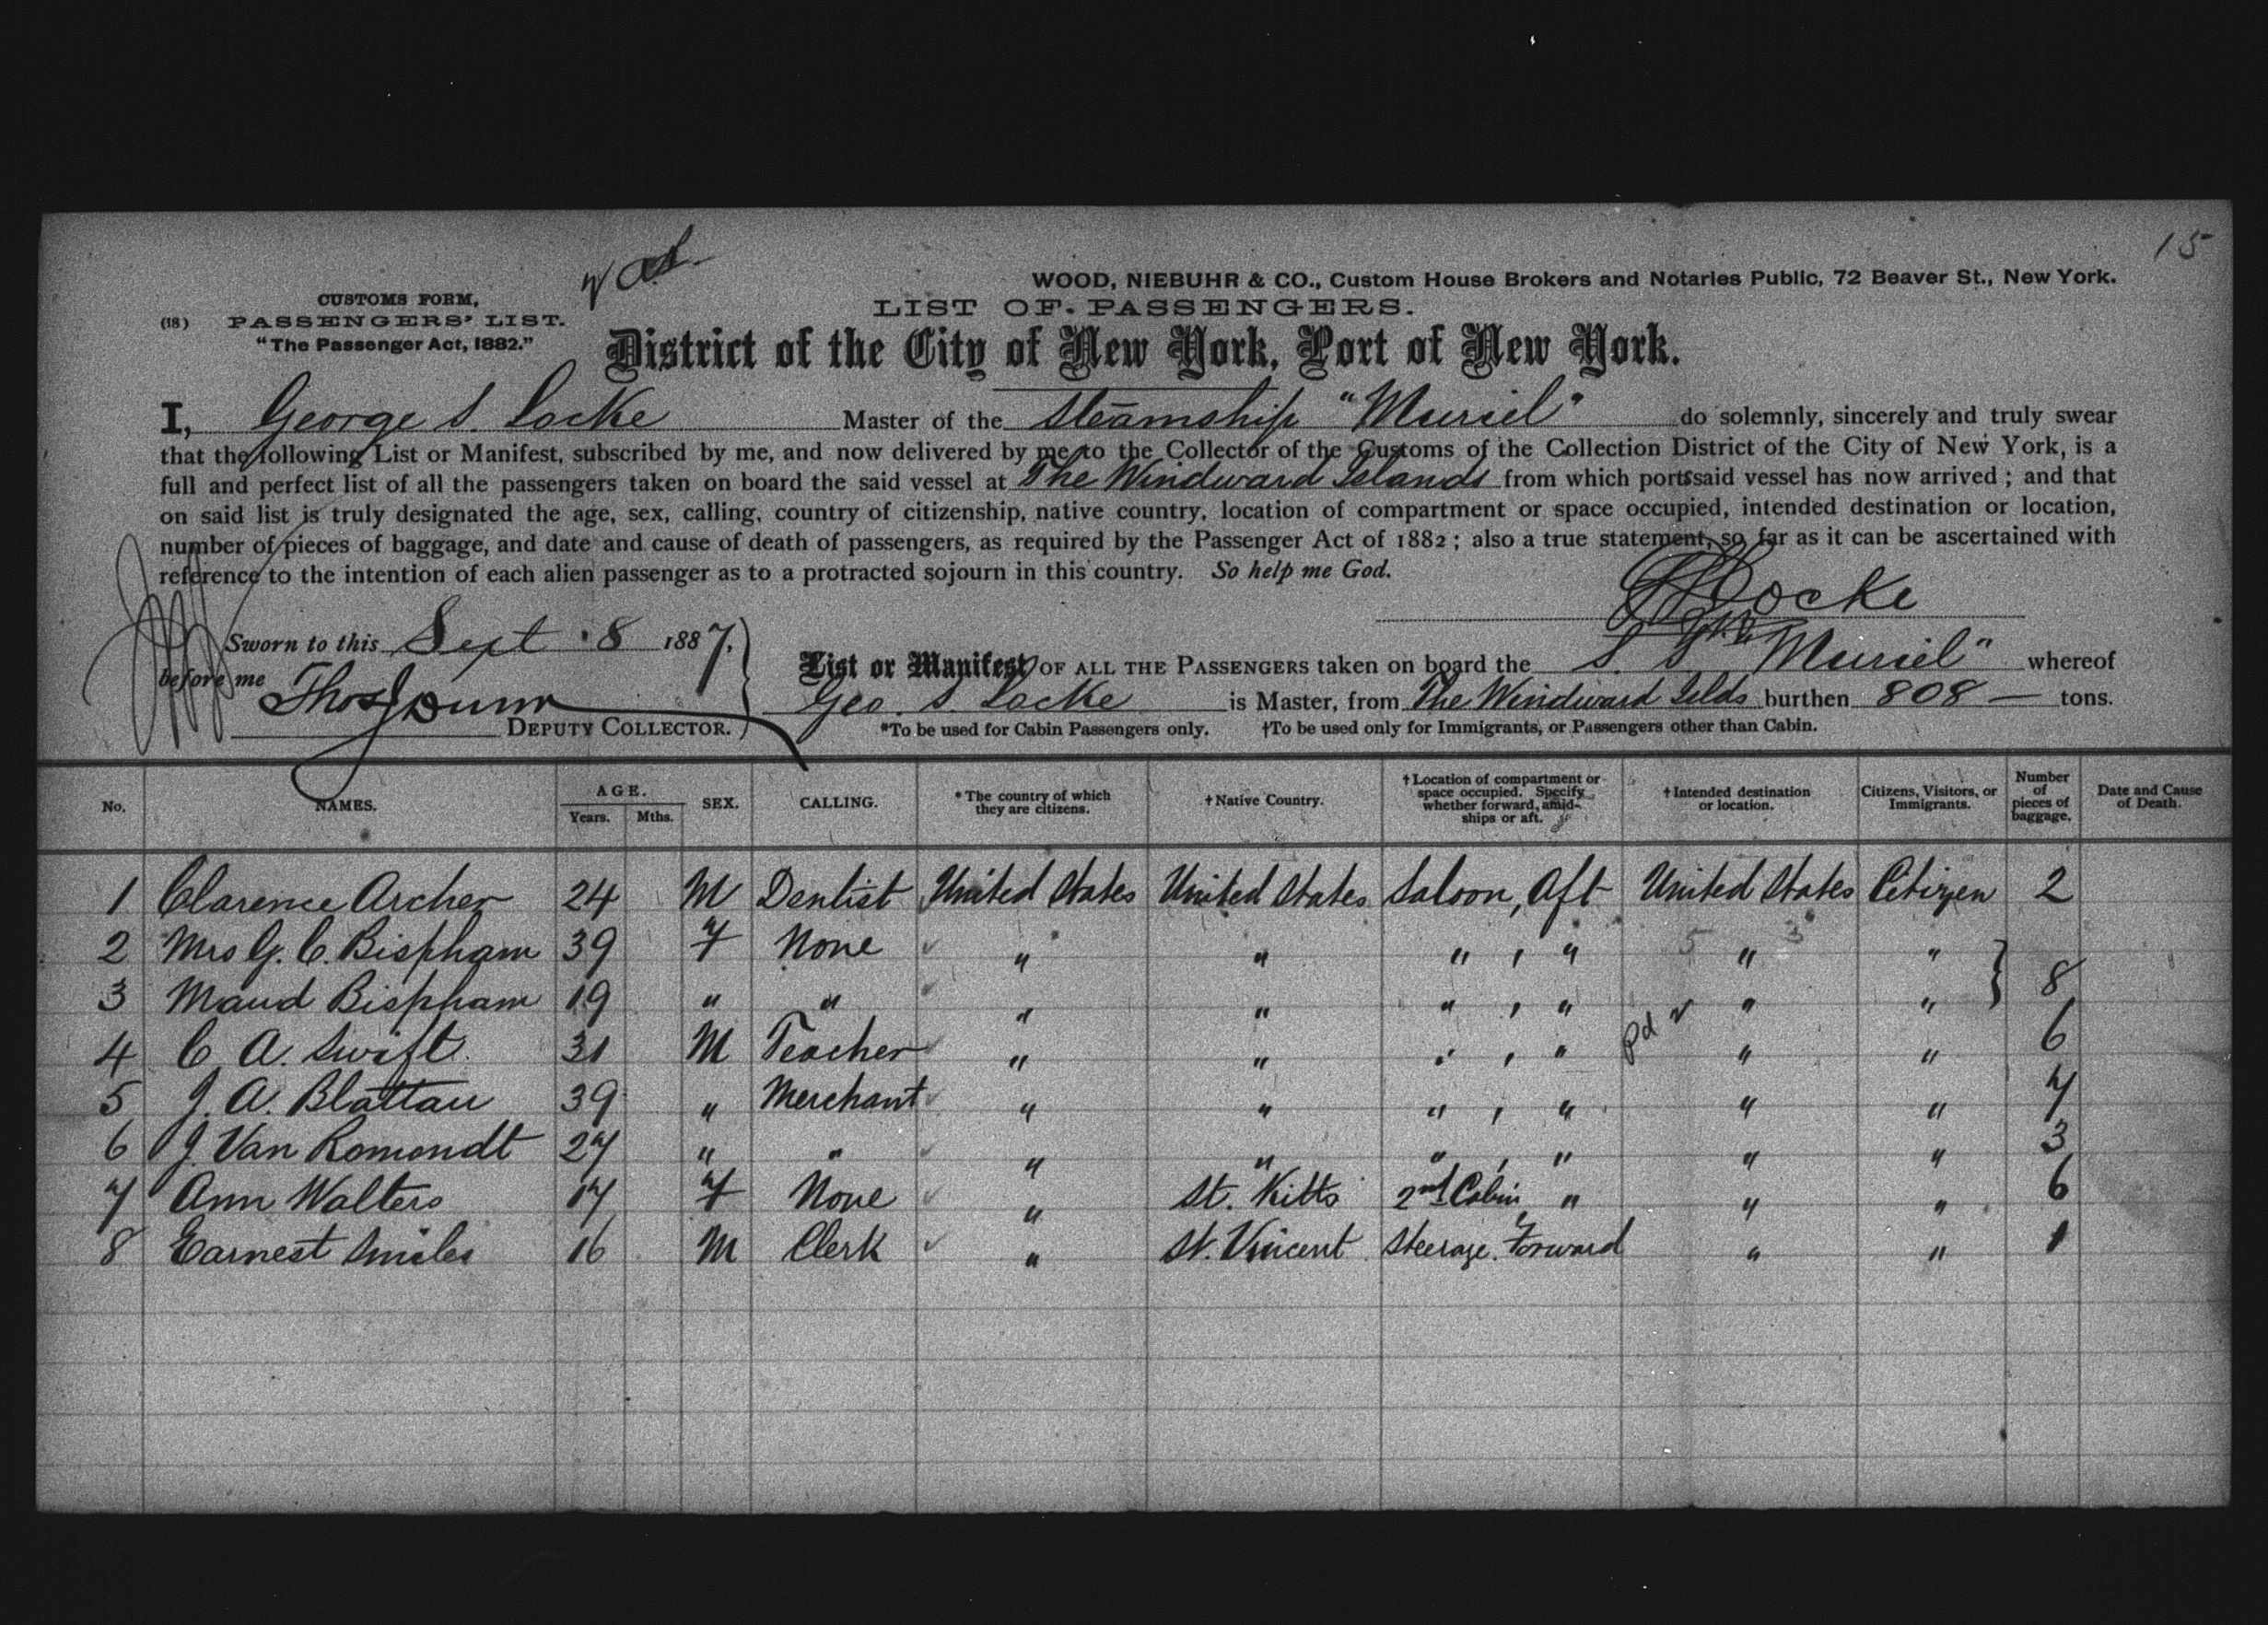 15
WOOD, NIEBUHR & CO., Custom House Brokers and Notaries Public, 72 Beaver St., New York.
CUSTOMS FORM,
(18) PASSENGERS' LIST.
"The Passenger Act, 1882."
LIST OF PASSENGERS.
District of the City of New York, Port of New York.
I, George S. Locke Master of the Steamship "Muriel" do solemnly, sincerely and truly swear
that the following List or Manifest, subscribed by me, and now delivered by me to the Collector of the Customs of the Collection District of the City of New York, is a
full and perfect list of all the passengers taken on board the said vessel at The Windward Islands from which ports said vessel has now arrived ; and that
on said list is truly designated the age, sex, calling, country of citizenship, native country, location of compartment or space occupied, intended destination or location,
number of pieces of baggage, and date and cause of death of passengers, as required by the Passenger Act of 1882 ; also a true statement, so far as it can be ascertained with
reference to the intention of each alien passenger as to a protracted sojourn in this country. So help me God.
Locke
Sworn to this Sept 8 1887,
before me
Thos J Dunn
DEPUTY COLLECTOR.
List or Manifest OF ALL THE PASSENGERS taken on board the S. S. "Muriel" whereof
Geo. S. Locke is Master, from The Windward Islds burthen 808 — tons.
*To be used for Cabin Passengers only. †To be used only for Immigrants, or Passengers other than Cabin.
No. NAMES. AGE. Years. Mths. SEX. CALLING. *The country of which they are citizens. †Native Country. †Location of compartment or space occupied. Specify whether forward, amid-ships or aft. †Intended destination or location. Citizens, Visitors, or Immigrants. Number of pieces of baggage. Date and Cause of Death.
1 Clarence Archer 24 M Dentist United States United States Saloon, Aft United States Citizen 2
2 Mrs G. C. Bispham 39 F None " " " , " " "
3 Maud Bispham 19 " " " " " , " " " 8
4 C A. Swift 31 M Teacher " " " , " pd " " 6
5 J. A. Blattau 39 " Merchant " " " , " " " 7
6 J. Van Romondt 27 " " " " " , " " " 3
7 Ann Walters 17 F None " St. Kitts 2nd Cabin " " " 6
8 Earnest Smiles 16 M Clerk " St. Vincent Steerage. Forward " " 1